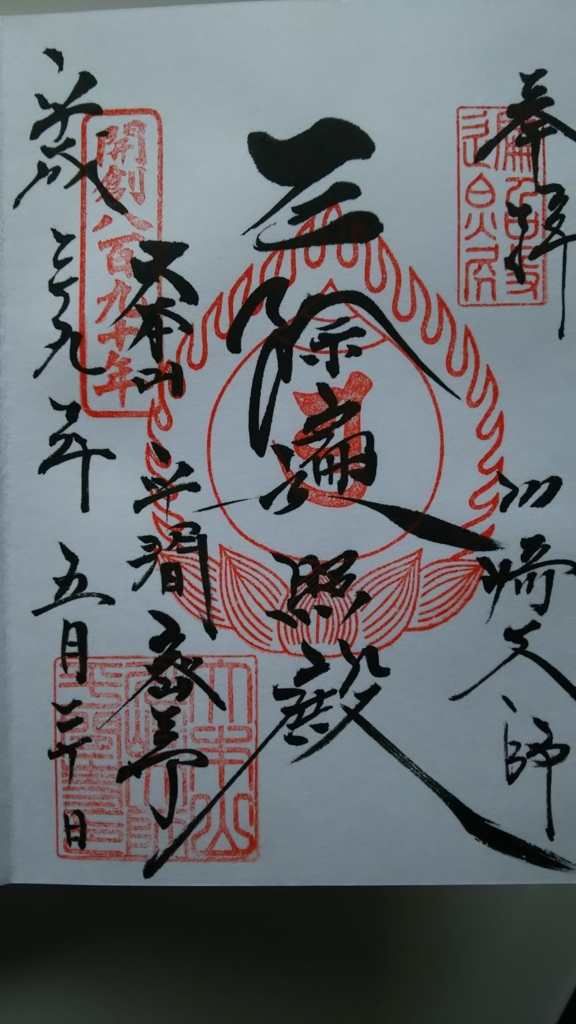 奉拝
川崎大師
厄除遍照殿
大本山 平間
平成二十九年 五月二十日
開創八百九十年